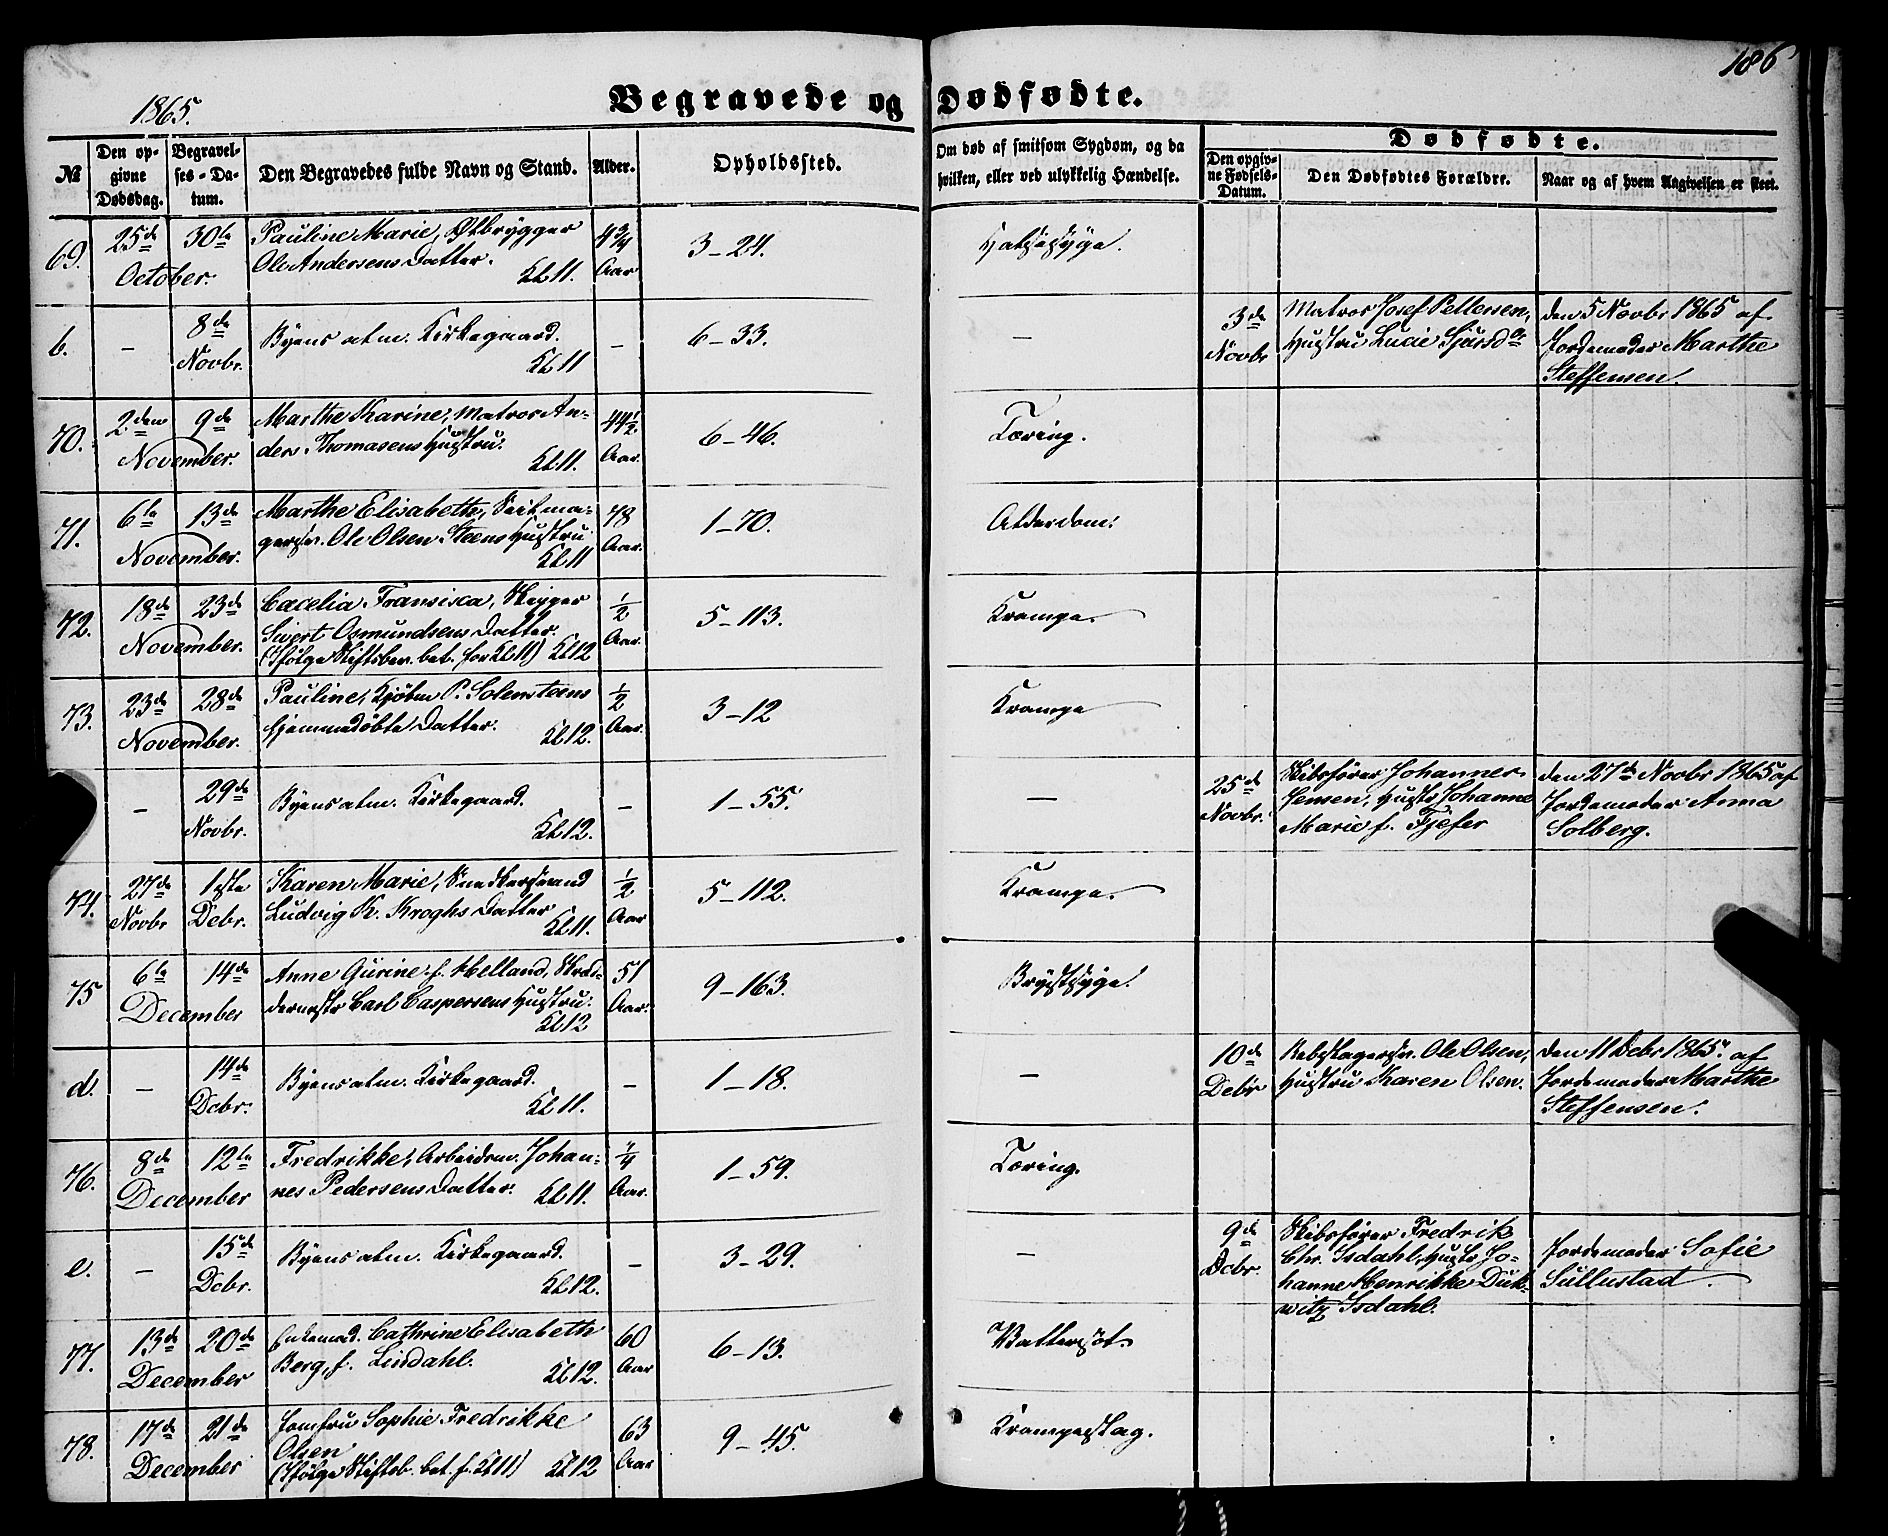 186
1865.
Begravede og Dødfødte.
№
Den opgivne Dødsdag.
Begravelses-Datum.
Den Begravedes fulde Navn og Stand.
Alder.
Opholdssted.
Om død af smitsom Sygdom, og da hvilken, eller ved ulykkelig Hændelse.
Dødfødte.
Den opgivne Fødsels-Datum.
Den Dødfødtes Forældre.
Naar og af hvem Angivelsen er skeet.
69. 25de 30te October. Pauline Marie, Ølbrygger
Ole Andersens Datter. Kl 11. 4¾ Aar 3-24. Halssyge.
b. - 8de Novbr. Byens alm. Kirkegaard. Kl 11 - 6-33. - 3de Novbr
Matros Josef Pettersen,
Hustru Lucie Sjursdr
den 5 Novbr 1865 af
Jordemoder Marthe
Steffensen.
70. 2den 9de November. Marthe Karine, Matros An-
ders Thomasens Hustru. Kl. 11. 44½ Aar. 6-46. Tæring.
71. 6te 13de November. Marthe Elisabeth, Seilma-
gersv. Ole Olsen Steens Hustru Kl 11 78 Aar. 1-70. Alderdom.
72. 18de 23de November. Cacelia Fransisca, Skipper
Sivert Osmundsens Datter.
(Ifølge Stiftsbev. bet. for Kl 11) Kl 12 ½ Aar. 5-113. Krampe.
73. 23de 28de November. Pauline, Kjøbm P. Solemsteens
hjemmedøbte Datter. Kl 12. ½ Aar. 3-12 Krampe
- 29de Novbr. Byens alm. Kirkegaard. Kl 12. - 1-55. - 25de Novbr.
Skibsfører Johannes
Jensen, Hustr Johanne
Marie f. Fjefer
den 27de Novbr 1865 af
Jordemoder Anna
Solberg.
74. 27de Novbr 1ste Debr. Karen Marie, Snedkersvend
Ludvig K. Kroghs Datter Kl 11. ½ Aar 5-112. Krampe.
75 6te 14de December Anne Gurine f. Helland, Skræd-
dermestr Carl Caspersens Hustru. Kl 12 51 Aar. 9-163. Brystsyge.
d. - 14de Debr. Byens alm. Kirkegaard. Kl 11. - 1-18. - 10de Debr
Rebslagersv. Ole Olsen,
Hustru Karen Olsen.
den 11 Debr 1865. af
Jordemoder Marthe
Steffensen.
76. 8de 12te December Fredrikke, Arbeidsm. Johan-
nes Pedersens Datter. Kl 11. ¼ Aar. 1-59. Tæring.
e. - 15de Debr. Byens alm. Kirkegaard. Kl 12. - 3-29. - 9de Debr.
Skibsfører Fredrik
Chr. Isdahl, Hustr Jo-
hanne Henrikke Duk-
witz Isdahl.
Jordemoder Sofie
Sullustad
77. 13de 20de December Enkemad. Cathrine Elisabeth
Berg, f. Lindahl. Kl 12. 60 Aar 6-13. Vattersot.
78. 17de 21de December Jomfru Sophie Fredrikke
Olsen
(Ifølge Stiftsb. bet. f. Kl 11) Kl 12 63 Aar 9-45. Krampeslag.